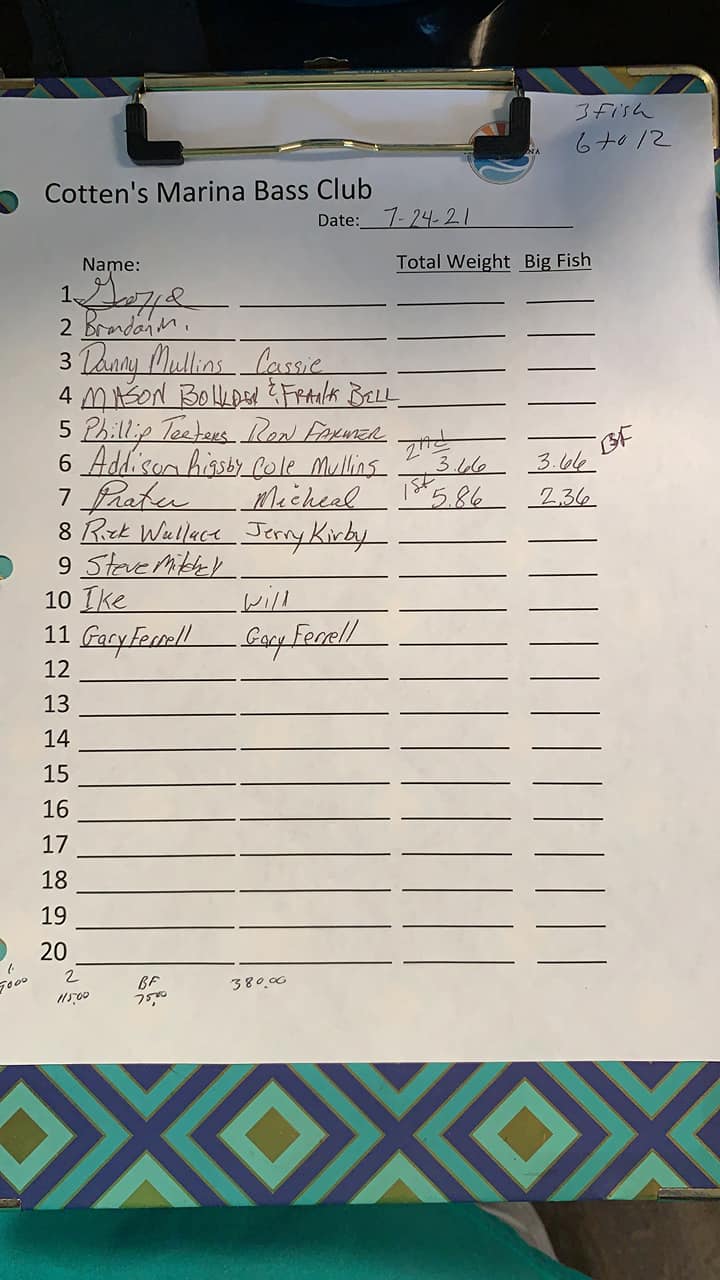 3 Fish
6 to 12
Cotten's Marina Bass Club
Date: 7-24-21
Name: Total Weight Big Fish
1 George
2 Brandon M.
3 Danny Mullins Cassie
4 MASON & FRANK BELL
5 Phillip Teeters RON FARMER
6 Addison Rigsby Cole Mullins 2nd 3.66 3.66 BF
7 Prater Micheal 1st 5.86 2.36
8 Rick Wallace Jerry Kirby
9 Steve Mitchell
10 Ike Will
11 Gary Ferrell Gary Ferrell
12
13
14
15
16
17
18
19
20
2 BF 380.00
115.00 75.00